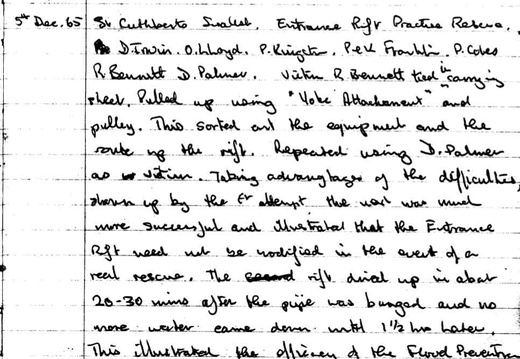 5th Dec. 65 St. Cuthberts Swallet. Entrance Rift Practice Rescue.
D. Irwin. O. Lloyd. P. Kingston. P & K Franklin. P. Coles
R. Bennett D. Palmer. Victim R. Bennett tied in carrying
sheet. Pulled up using "Yoke Attachement" and
pulley. This sorted out the equipment and the
route up the rift. Repeated using D. Palmer
as victim. Taking advantages of the difficulties
shown up by the 1st attempt the next was much
more successful and illustrated that the Entrance
Rift need not be modified in the event of a
real rescue. The rift dried up in about
20-30 mins after the pipe was bunged and no
more water came down until 1½ hrs later.
This illustrated the efficiency of the Flood Prevention